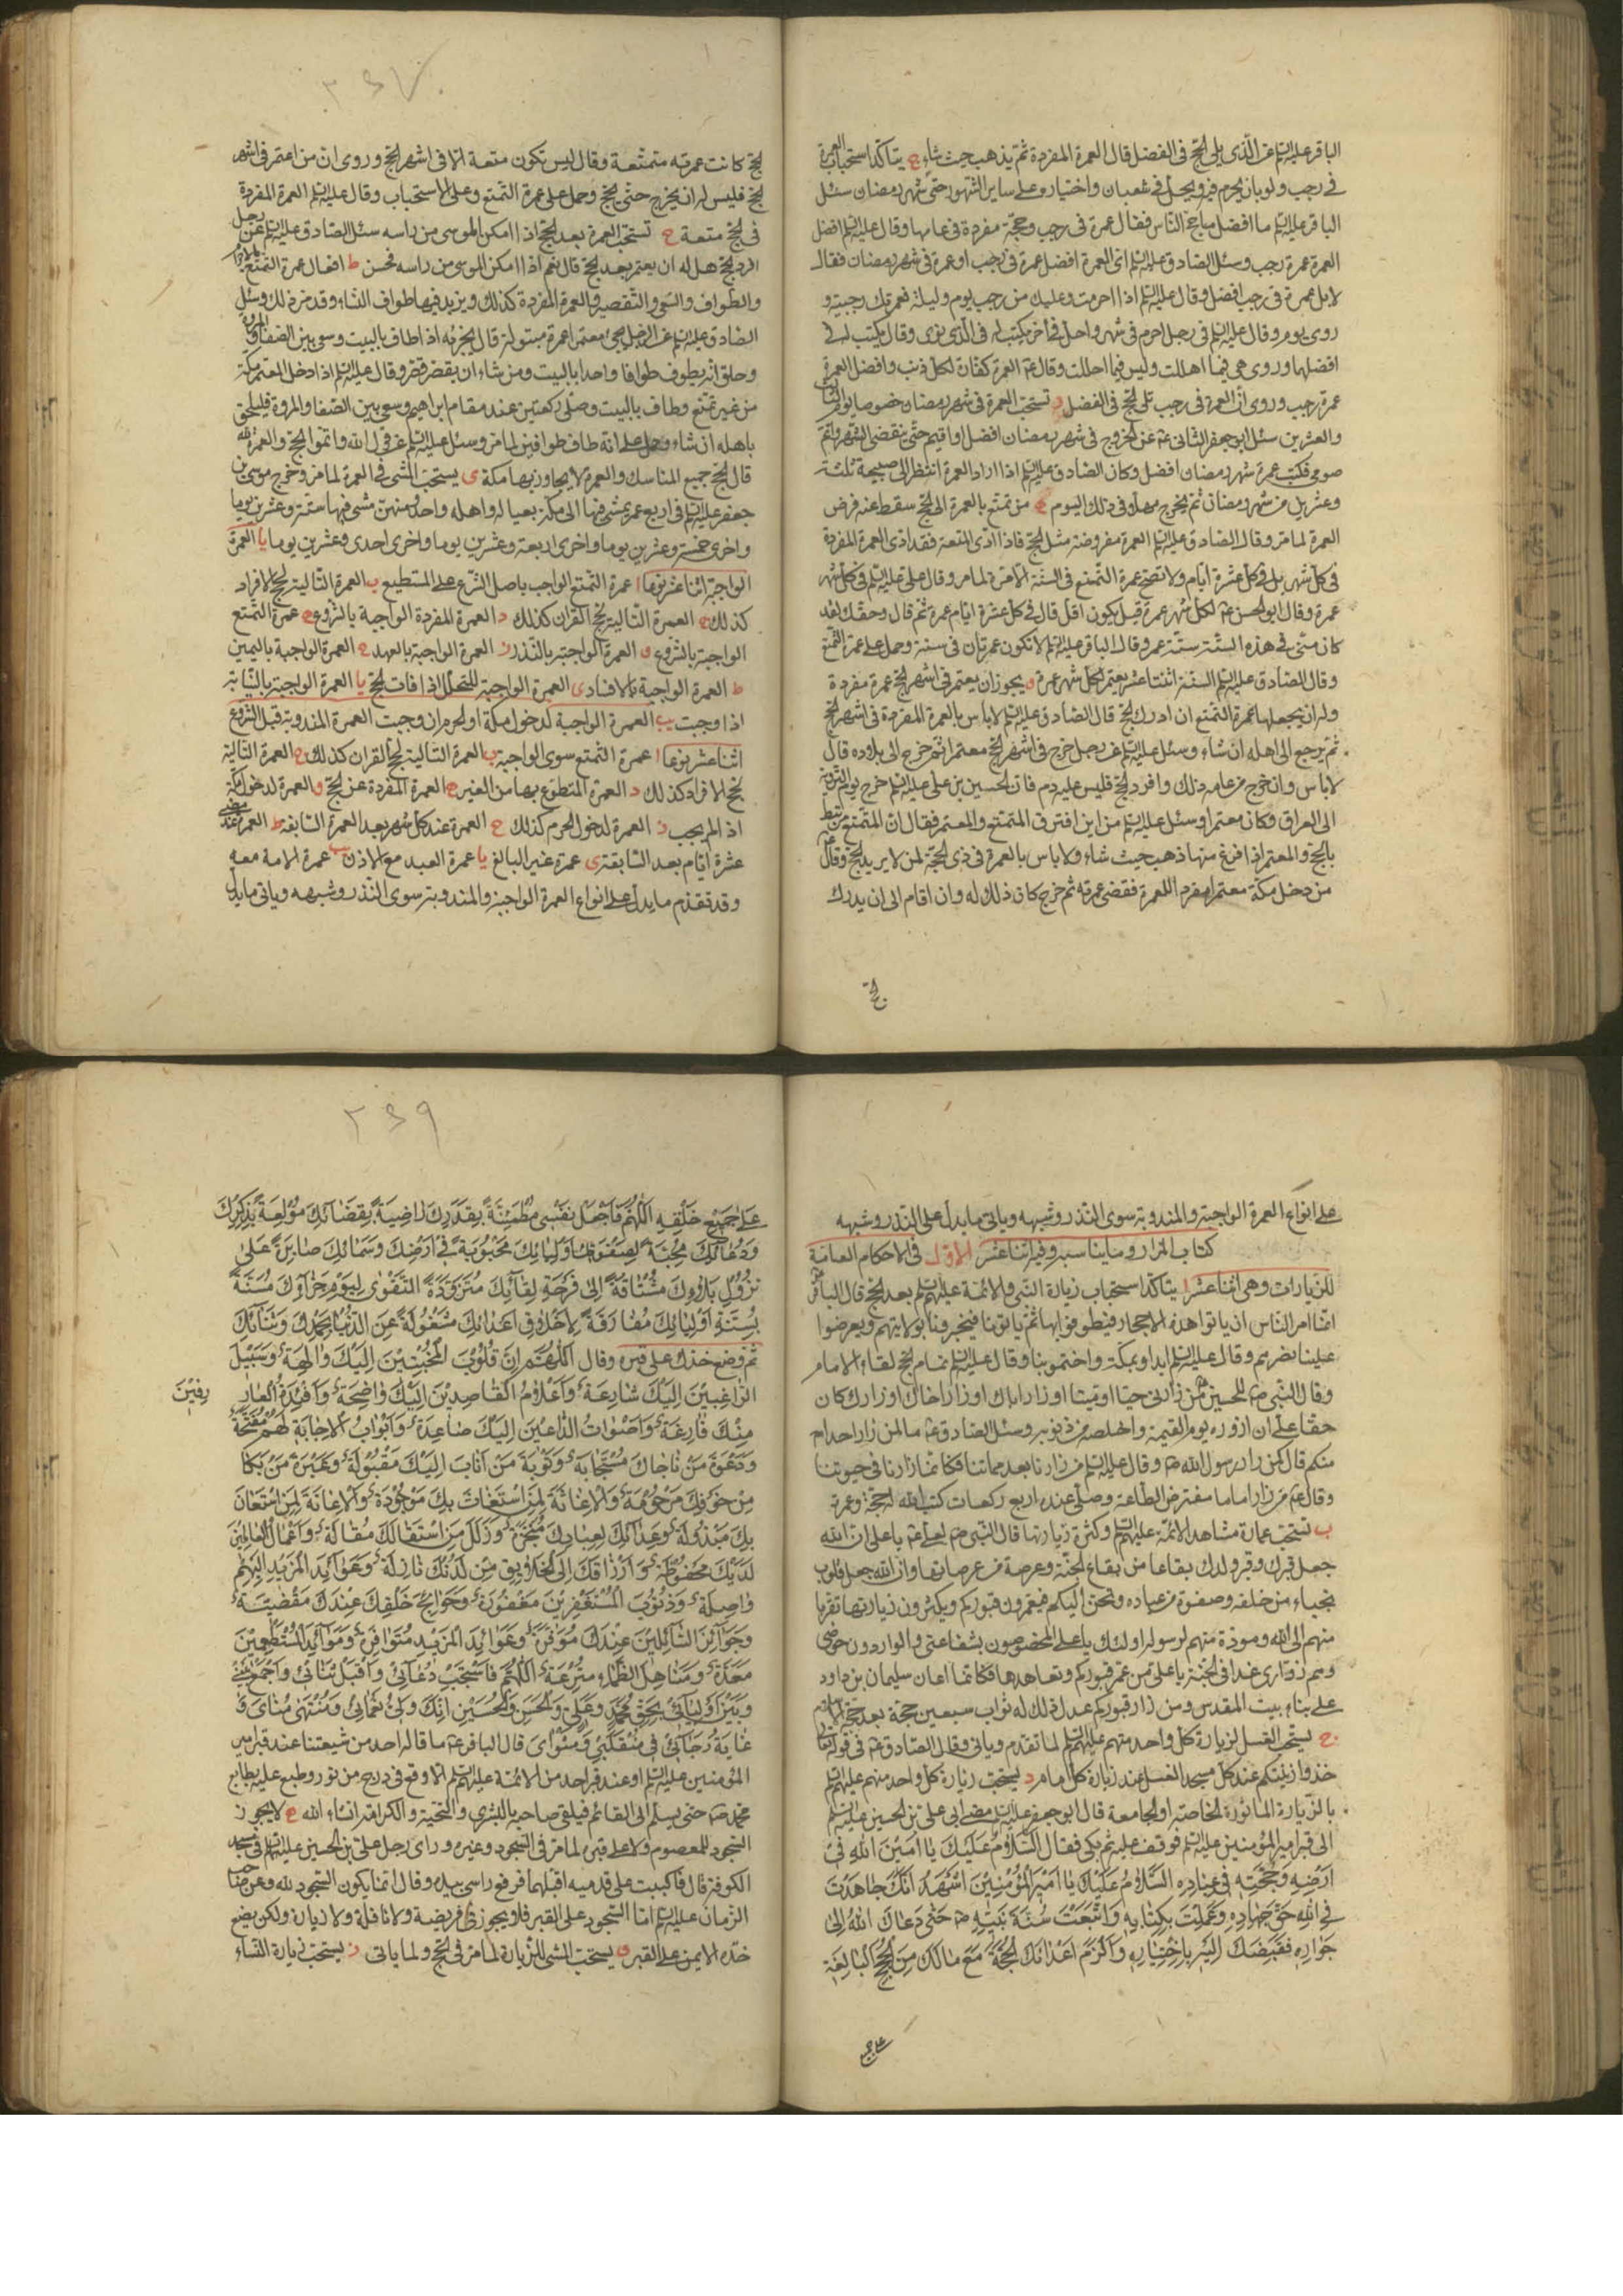 الباقر عليه السلم عن الذي يلي الحج في الفضل قال العمرة المفردة ثم يذهب حيث شاء ج يتأكد استحباب العمرة
في رجب ولو بان يحرم فيه ويحل في شعبان واختياره على ساير الشهور حتى شهر رمضان سئل
الباقر عليه السلم ما افضل ما حج الناس فقال عمرة في رجب وحجة مفردة في عامها وقال عليه السلم افضل
العمرة عمرة رجب وسئل الصادق عليه السلم اى العمرة افضل عمرة في رجب او عمرة في شهر رمضان فقال
لا بل عمرة في رجب افضل وقال عليه السلم اذا احرمت وعليك من رجب يوم وليلة فعمرتك رجبية و
روى يوم وقال عليه السلم في رجل احرم في شهر واحل في اخر يكتب له في الذي نوى وقال يكتب له في
افضلها وروى هي فيما اهللت وليس فيما احللت وقال ع العمرة كفارة لكل ذنب وافضل العمرة
عمرة رجب وروى ان العمرة في رجب تلي الحج في الفضل د تستحب العمرة في شهر رمضان خصوصا يوم الثالث
والعشرين سئل ابو جعفر الثاني ع عن الخروج في شهر رمضان افضل او اقيم حتى ينقضى الشهر واتم
صومي فكتب عمرة شهر رمضان افضل وكان الصادق عليه السلم اذا اراد العمرة انتظر الى صبيحة ثلثة
وعشرين من شهر رمضان ثم يخرج مهلا في ذلك اليوم ه من تمتع بالعمرة الى الحج سقط عنه فرض
العمرة لما مر وقال الصادق عليه السلم العمرة مفروضة مثل الحج فاذا ادى المتعة فقد ادى العمرة المفردة
في كل شهر بل في كل عشرة ايام ولا تصح عمرة التمتع في السنة الا مرة لما مر وقال علي عليه السلم في كل شهر
عمرة وقال ابو الحسن ع لكل شهر عمرة قيل يكون اقل قال في كل عشرة ايام عمرة ثم قال وحقك لقد
كان مني في هذه السنة ستة عمر وقال الباقر عليه السلم لا تكون عمرتان في سنة وحمل على عمرة التمتع
وقال الصادق عليه السلم السنة اثنتا عشر يعتمر لكل شهر عمرة و يجوز ان يعتمر في اشهر الحج عمرة مفردة
وله ان يجعلها عمرة التمتع ان ادرك الحج قال الصادق عليه السلم لا باس بالعمرة المفردة في اشهر الحج
ثم يرجع الى اهله ان شاء وسئل عليه السلم عن رجل خرج في اشهر الحج معتمرا ثم خرج الى بلاده قال
لا باس وان خرج من عامه ذلك وافرد الحج فليس عليه دم فان الحسين بن علي عليه السلم خرج يوم التروية
الى العراق وكان معتمرا وسئل عليه السلم من اين افترق المتمتع والمعتمر فقال ان المتمتع مرتبط
بالحج والمعتمر اذا فرغ منها ذهب حيث شاء ولا باس بالعمرة في ذي الحجة لمن لا يريد الحج وقال
من دخل مكة معتمرا مفردا للعمرة فقضى عمرته ثم خرج كان ذلك له وان اقام الى ان يدرك
الحج
الحج كانت عمرته متعة وقال ليس تكون متعة الا في اشهر الحج وروى ان من اعتمر في اشهر
الحج فليس له ان يخرج حتى يحج وحمل على عمرة التمتع وعلى الاستحباب وقال عليه السلم العمرة المفردة
في الحج متعة ح تستحب العمرة بعد الحج اذا امكن الموسى من راسه سئل الصادق عليه السلم عن رجل
افرد الحج هل له ان يعتمر بعد الحج قال نعم اذا امكن الموسى من راسه فحسن ط افعال عمرة التمتع الاحرام
والطواف والسعي والتقصير والعمرة المفردة كذلك ويزيد فيها طواف النساء وقد مر ذلك وسئل
الصادق عليه السلم عن الرجل يجئ معتمرا عمرة مبتولة قال يجزئه اذا طاف بالبيت وسعى بين الصفا والمروة
وحلق ان يطوف طوافا واحدا بالبيت ومن شاء ان يقصر قصر وقال عليه السلم اذا دخل المعتمر مكة
من غير تمتع وطاف بالبيت وصلى ركعتين عند مقام ابراهيم وسعى بين الصفا والمروة فليلحق
باهله ان شاء وحمل على انه طاف طوافين لما مر وسئل عليه السلم عن قول الله واتموا الحج والعمرة لله
قال الحج جميع المناسك والعمرة لا يجاوز بها مكة ى يستحب المشى في العمرة لما مر وخرج موسى بن
جعفر عليه السلم في اربع عمر يمشي فيها الى مكة بعياله واهله واحد منهن مشى فيها ستة وعشرين يوما
واخرى خمسة وعشرين يوما واخرى اربعة وعشرين يوما واخرى احدى وعشرين يوما يا العمرة
الواجبة اثنا عشر نوعا ا عمرة التمتع الواجب باصل الشرع على المستطيع ب العمرة التالية لحج الافراد
كذلك ج العمرة التالية لحج القران كذلك د العمرة المفردة الواجبة بالشروع ه عمرة التمتع
الواجبة بالشروع و العمرة الواجبة بالنذر ز العمرة الواجبة بالعهد ح العمرة الواجبة باليمين
ط العمرة الواجبة بالافساد ى العمرة الواجبة للتحلل اذا فات الحج يا العمرة الواجبة بالنيابة
اذا وجبت يب العمرة الواجبة لدخول مكة او الحرم ان وجبت العمرة المندوبة قبل الشروع
اثنا عشر نوعا ا عمرة التمتع سوى الواجبة ب العمرة التالية لحج القران كذلك ج العمرة التالية
لحج الافراد كذلك د العمرة المتطوع بها من الغير ه العمرة المفردة عن الحج و العمرة لدخول مكة
اذا لم يجب ز العمرة لدخول الحرم كذلك ح العمرة عند كل شهر بعد العمرة السابقة ط العمرة عند مضى
عشرة ايام بعد السابقة ى عمرة غير البالغ يا عمرة العبد مع الاذن يب عمرة الامة معه
وقد تقدم ما يدل على انواع العمرة الواجبة والمندوبة سوى النذر وشبهه وياتى ما يدل
على انواع العمرة الواجبة والمندوبة سوى النذر وشبهه وياتى ما يدل على النذر وشبهه
كتاب المزار وما يناسبه وفيه اثنا عشر الاول في الاحكام العامة
للزيارات وهي اثنا عشر ا يتأكد استحباب زيارة النبي والائمة عليهم السلم بعد الحج قال الباقر ع
انما امر الناس ان ياتوا هذه الاحجار فيطوفوا بها ثم ياتونا فيخبرونا بولايتهم ويعرضوا
علينا نصرهم وقال عليه السلم ابداوا بمكة واختموا بنا وقال عليه السلم تمام الحج لقاء الامام
وقال النبي ص للحسين ع من زارني حيا او ميتا او زار اباك او زار اخاك او زارك كان
حقا علي ان ازوره يوم القيمة واخلصه من ذنوبه وسئل الصادق ع ما لمن زار احدا
منكم قال كمن زار رسول الله ص وقال عليه السلم من زارنا بعد مماتنا فكانما زارنا في حيوتنا
وقال ع من زار اماما مفترض الطاعة وصلى عنده اربع ركعات كتب الله له حجة وعمرة
ب تستحب عمارة مشاهد الائمة عليهم السلم وكثرة زيارتها قال النبي ص لعلي ع يا علي ان الله
جعل قبرك وقبر ولدك بقاعا من بقاع الجنة وعرصة من عرصاتها وان الله جعل قلوب
نجباء من خلقه وصفوة من عباده وتحن اليكم فيعمرون قبوركم ويكثرون زيارتها تقربا
منهم الى الله ومودة منهم لرسوله اولئك يا علي المخصوصون بشفاعتي والواردون حوضي
وهم زواري غدا في الجنة يا علي من عمر قبوركم وتعاهدها فكانما اعان سليمان بن داود
على بناء بيت المقدس ومن زار قبوركم عدل ذلك له ثواب سبعين حجة بعد حجة الاسلام
ج يستحب الغسل لزيارة كل واحد منهم عليهم السلم لما تقدم وياتى وقال الصادق ع في قوله تعالى
خذوا زينتكم عند كل مسجد الغسل عند زيارة كل امام د يستحب زيارة كل واحد منهم عليهم السلم
بالزيارة الماثورة الخاصة او الجامعة قال ابو جعفر عليه السلم مضى ابي علي بن الحسين عليه السلم
الى قبر امير المؤمنين عليه السلم فوقف عليه ثم بكى فقال السَّلامُ عَلَيْكَ يا اَمِينَ اللهِ في
اَرْضِهِ وَحُجَّتِهِ في عِبادِهِ السَّلامُ عَلَيْكَ يا اَمِيرَ المُؤْمِنِينَ اَشْهَدُ اَنَّكَ جاهَدْتَ
في اللهِ حَقَّ جِهادِهِ وَعَمِلْتَ بِكِتابِهِ وَاتَّبَعْتَ سُنَّةَ نَبِيِّهِ ص حَتّى دَعاكَ اللهُ اِلى
جِوارِهِ فَقَبَضَكَ اِلَيْهِ بِاخْتِيارِهِ وَاَلْزَمَ اَعْدائَكَ الحُجَّةَ مَعَ ما لَكَ مِنَ الحُجَجِ البالِغَةِ
على جميع
عَلى جَمِيعِ خَلْقِهِ اَللّهُمَّ فَاجْعَلْ نَفْسِي مُطْمَئِنَّةً بِقَدَرِكَ راضِيَةً بِقَضائِكَ مُولَعَةً بِذِكْرِكَ
وَدُعائِكَ مُحِبَّةً لِصَفْوَةِ اَوْلِيائِكَ مَحْبُوبَةً في اَرْضِكَ وَسَمائِكَ صابِرَةً عَلى
نُزُولِ بَلائِكَ مُشْتاقَةً اِلى فَرْحَةِ لِقائِكَ مُتَزَوِّدَةً التَّقْوى لِيَوْمِ جَزائِكَ مُسْتَنَّةً
بِسُنَّةِ اَوْلِيائِكَ مُفارِقَةً لِاَخْلاقِ اَعْدائِكَ مَشْغُولَةً عَنِ الدُّنْيا بِحَمْدِكَ وَثَنائِكَ
ثم وضع خده على قبره وقال اَللّهُمَّ اِنَّ قُلُوبَ المُخْبِتِينَ اِلَيْكَ والِهَةٌ وَسُبُلَ
الرّاغِبِينَ اِلَيْكَ شارِعَةٌ وَاَعْلامَ القاصِدِينَ اِلَيْكَ واضِحَةٌ وَاَفْئِدَةَ العارِ
رِفِينَ
مِنْكَ فازِعَةٌ وَاَصْواتَ الدّاعِينَ اِلَيْكَ صاعِدَةٌ وَاَبْوابَ الاِجابَةِ لَهُمْ مُفَتَّحَةٌ
وَدَعْوَةَ مَنْ ناجاكَ مُسْتَجابَةٌ وَتَوْبَةَ مَنْ اَنابَ اِلَيْكَ مَقْبُولَةٌ وَعَبْرَةَ مَنْ بَكا
مِنْ خَوْفِكَ مَرْحُومَةٌ وَالاِغاثَةَ لِمَنِ اسْتَغاثَ بِكَ مَوْجُودَةٌ وَالاِعانَةَ لِمَنِ اسْتَعانَ
بِكَ مَبْذُولَةٌ وَعِداتِكَ لِعِبادِكَ مُنْجَزَةٌ وَزَلَلَ مَنِ اسْتَقالَكَ مُقالَةٌ وَاَعْمالَ العامِلِينَ
لَدَيْكَ مَحْفُوظَةٌ وَاَرْزاقَكَ اِلَى الخَلائِقِ مِنْ لَدُنْكَ نازِلَةٌ وَعَوائِدَ المَزِيدِ اِلَيْهِمْ
واصِلَةٌ وَذُنُوبَ المُسْتَغْفِرِينَ مَغْفُورَةٌ وَحَوائِجَ خَلْقِكَ عِنْدَكَ مَقْضِيَّةٌ
وَجَوائِزَ السّائِلِينَ عِنْدَكَ مُوَفَّرَةٌ وَعَوائِدَ المَزِيدِ مُتَواتِرَةٌ وَمَوائِدَ المُسْتَطْعِمِينَ
مُعَدَّةٌ وَمَناهِلَ الظِّماءِ مُتْرَعَةٌ اَللّهُمَّ فَاسْتَجِبْ دُعائِي وَاقْبَلْ ثَنائِي وَاجْمَعْ بَيْنِي
وَبَيْنَ اَوْلِيائِي بِحَقِّ مُحَمَّدٍ وَعَلِيٍّ وَالحَسَنِ وَالحُسَيْنِ اِنَّكَ وَلِيُّ نَعْمائِي وَمُنْتَهى مُنايَ وَ
غايَةُ رَجائِي في مُنْقَلَبِي وَمَثْوايَ قال الباقر ع ما قاله احد من شيعتنا عند قبر امير
المؤمنين عليه السلم او عند قبر احد من الائمة عليهم السلم الا وقع في درج من نور وطبع عليه بطابع
محمد ص حتى يسلم الى القائم فيلقى صاحبه بالبشرى والتحية والكرامة انشاء الله ه لا يجوز
السجود للمعصوم ولا على قبره لما مر في السجود وغيره وراى رجل علي بن الحسين عليه السلم في مسجد
الكوفة قال فاكببت على قدميه اقبلهما فرفع راسي بيده وقال انما يكون السجود لله وعن صاحب
الزمان عليه السلم اما السجود على القبر فلا يجوز في فريضة ولا نافلة ولا زيارة ولكن يضع
خده الايمن على القبر و يستحب المشى للزيارة لما مر في الحج ولما ياتى ز يستحب زيارة النساء